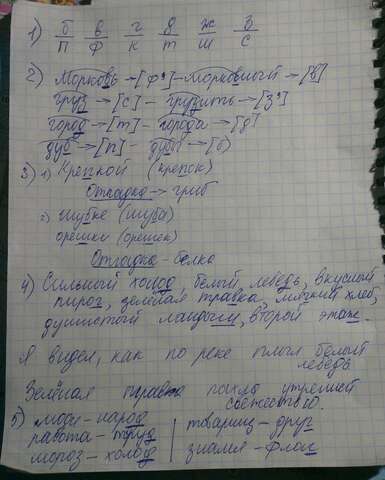 1) б/п в/ф г/к д/т ж/ш з/с
2) Морковь → [ф'] - морковный → [в]
груз → [с] - грузить → [з']
город → [т] - города → [д]
дуб → [п] - дубы → [б]
3) 1) Крепкой (крепок)
Отгадка → гриб
2) шубке (шуба)
орешки (орешек)
Отгадка - белка
4) Сильный холод, белый лебедь, вкусный
пирог, зелёная травка, мягкий хлеб,
душистый ландыш, второй этаж.
Я видел, как по реке плыл белый
лебедь
Зелёная травка пахла утренней
свежестью.
5) люди - народ | товарищ - друг
работа - труд | знамя - флаг
мороз - холод